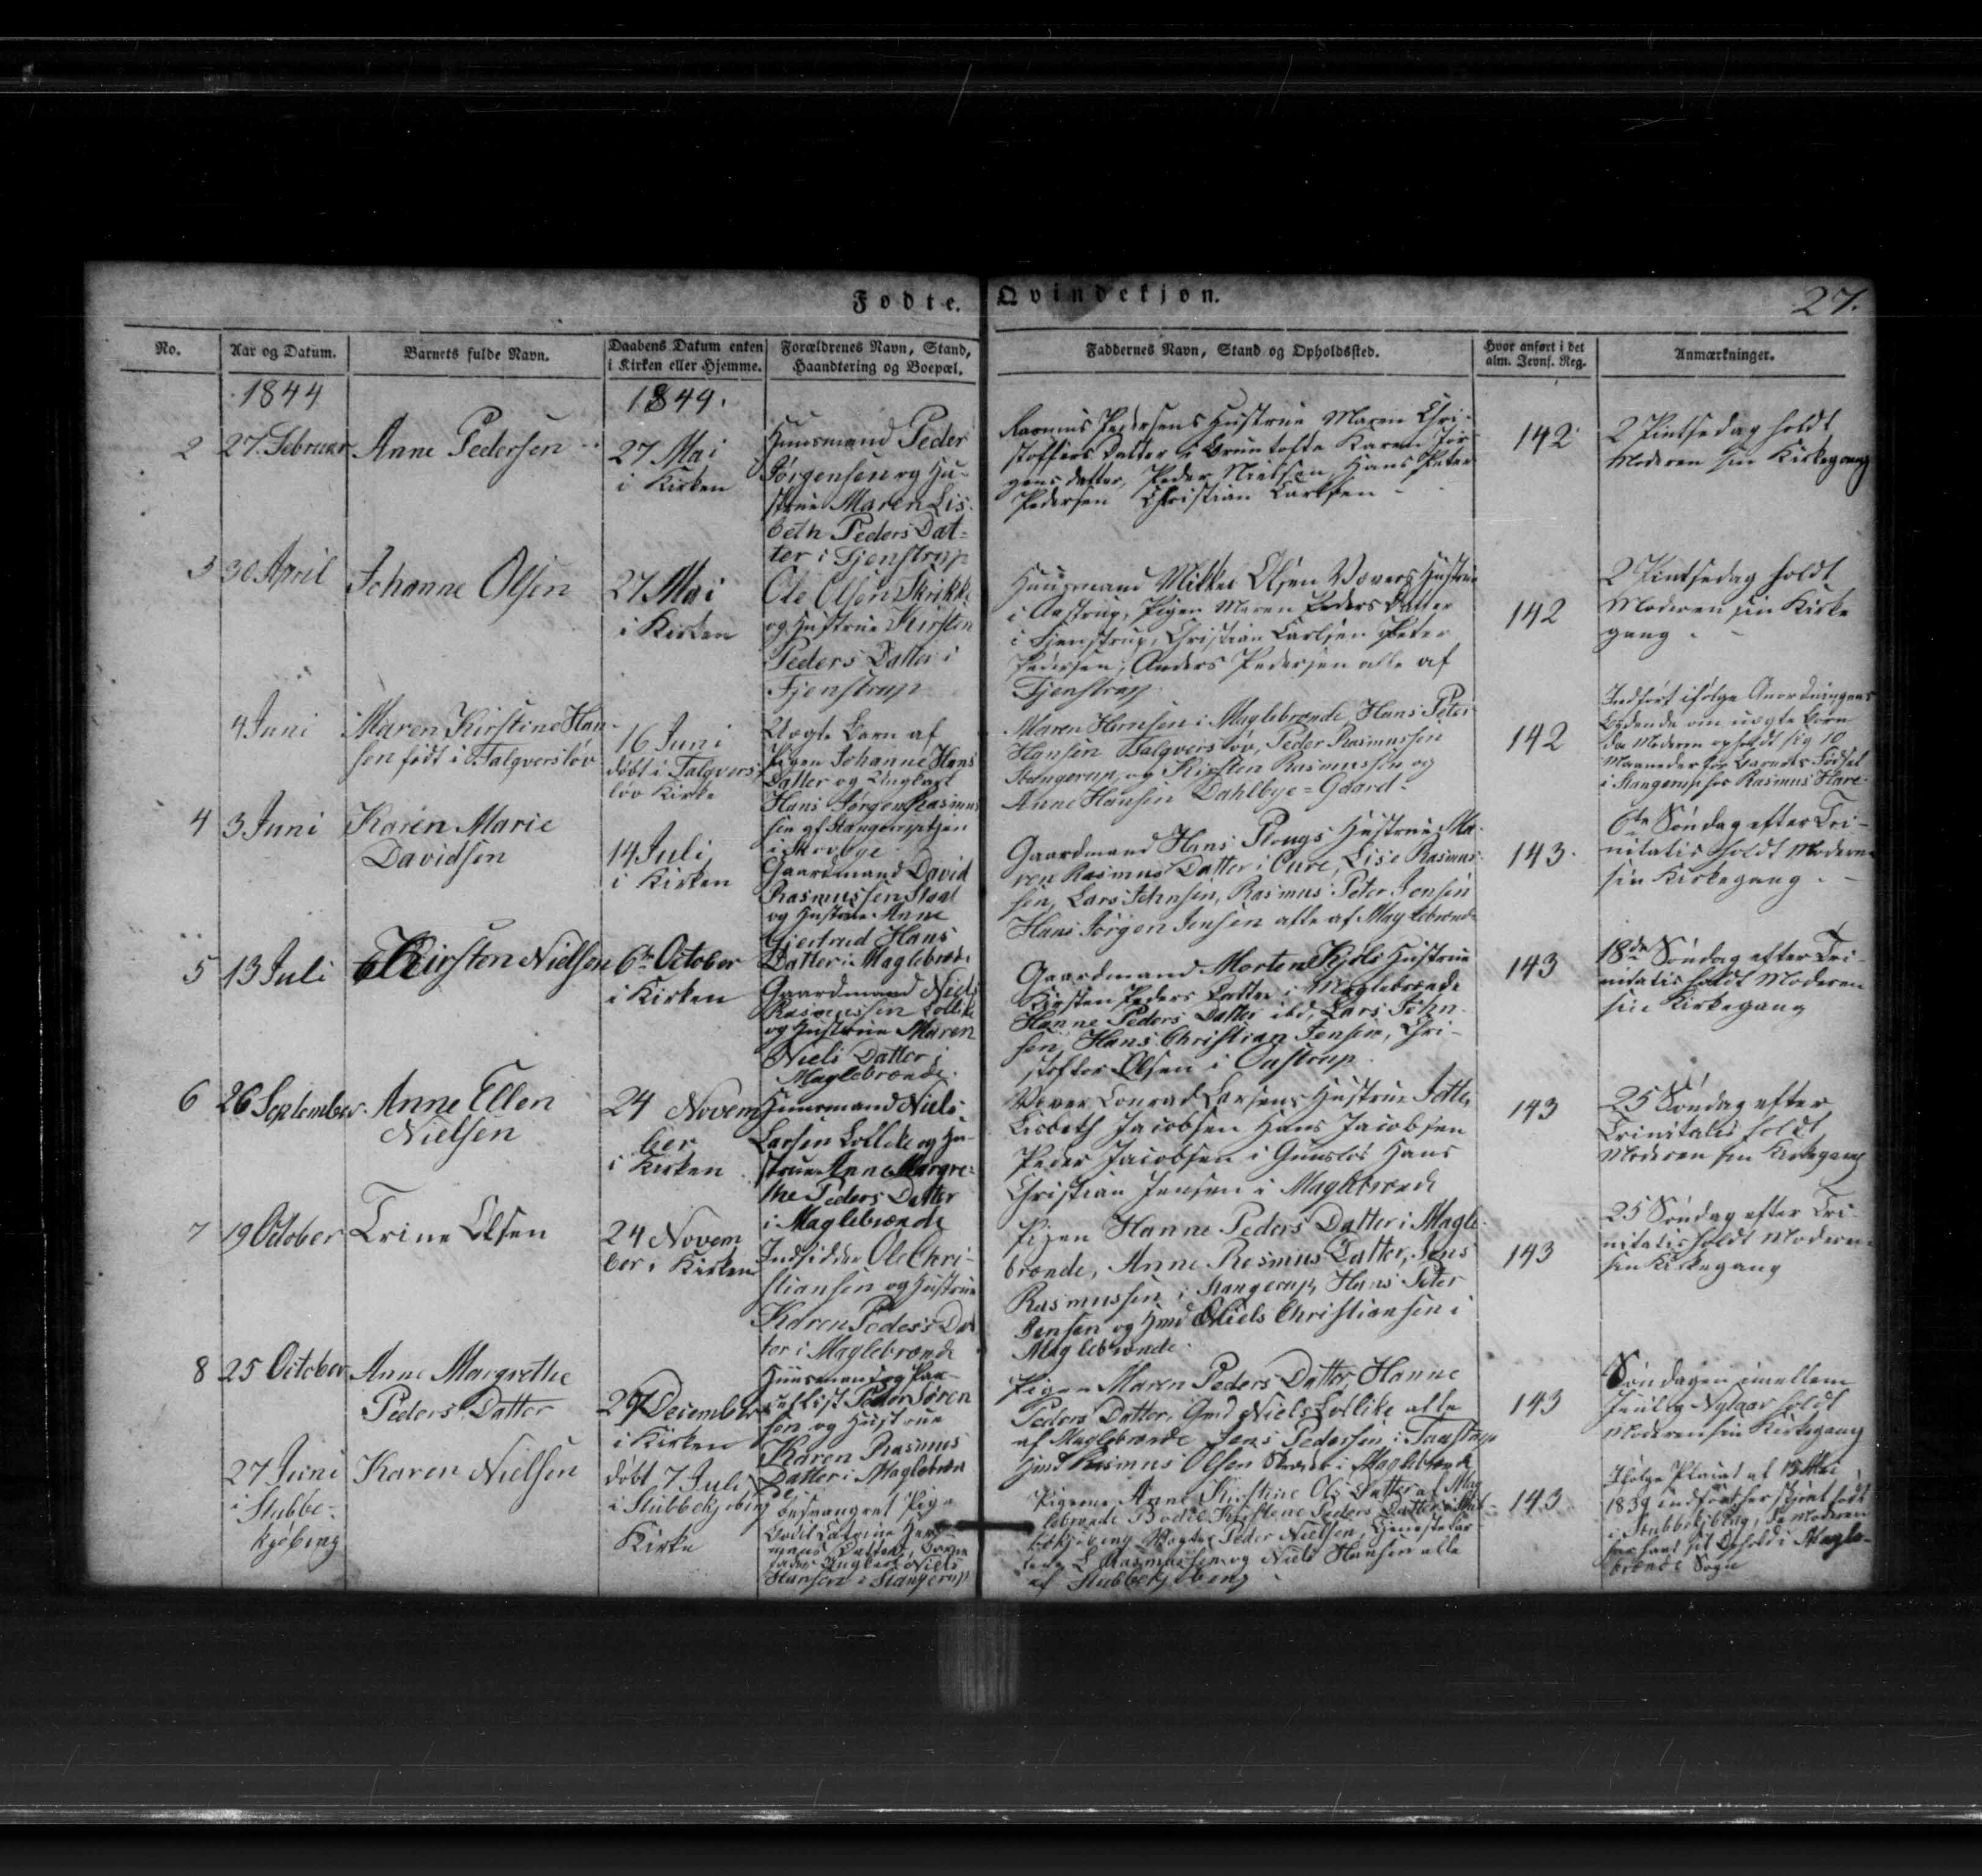 Fødte. Qvindekjøn.
27.
No.
Aar og Datum.
Barnets fulde Navn.
Daabens Datum enten
i Kirken eller Hjemme.
Forældrenes Navn, Stand,
Haandtering og Boepæl.
Faddernes Navn, Stand og Opholdssted.
Hvor anført i det
alm. Jevnf. Reg.
Anmærkninger.
1844
1844.
2
27. Februar
Anne Pedersen
27 Mai
i Kirken
Huusmand Peder
Jørgensen og Hu-
strue Maren Lis-
beth Peders Dat-
ter i Tjenstrup
Rasmus Pedersens Hustrue Maren Chri-
stoffers Datter Karen Jør-
gens datter, Peder Nielsen, Hans Peter
Pedersen Christian Carlsen
142
2 Pintsedag holdt
Moderen sin Kirkegang
3
30 April
Johanne Olsen
27 Mai
i Kirken
Ole Olsen Skrikke
og Hustrue Kirsten
Peders Datter i
Tjenstrup
Huusmand Mikkel Olsen Vævers Hustrue
i Aastrup, Pigen Maren Peders Datter
i Tjenstrup, Christian Carlsen Peter
Pedersen, Anders Pedersen alle af
Tjenstrup
142
2 Pintsedag holdt
Moderen sin Kirke
gang
4 Juni
Maren Kirstine Han-
sen født i Falgversløv
16 Juni
døbt i Falgvers-
løv Kirke
Uægte Barn af
Pigen Johanne Hans
Datter og Ungkarl
Hans Jørgen Rasmus
sen af Stangerup
Maren Hansen i Maglebrænde, Hans Peter
Hansen Falgversløv, Peder Rasmussen
Stangerup, og Kirsten Rasmussen og
Anne Hansen Dahlbye-Gaard.
142
Indført ifølge Anordningens
Bydende om uægte Børn
da Moderen opholdt sig 10
Maaneder før Barnets Fødsel
i Stangerup hos Rasmus Hare
4
3 Juni
Karen Marie
Davidsen
14 Juli
i Kirken
Gaardmand David
Rasmussen Staal
og Hustrue Anne
Giertrud Hans
Datter i Maglebrænde
Gaardmand Hans Plougs Hustrue, Ma-
ren Rasmus Datter i Cure, Lise Rasmus-
sen, Lars Johnsen, Rasmus Peter Jensen
Hans Jørgen Jensen alle af Maglebrænde
143.
6te Søndag efter Tri-
nitatis holdt Moderen
sin Kirkegang
5
13 Juli
Kirsten Nielsen
6te October
i Kirken
Gaardmand Niels
Rasmussen Lollike
og Hustrue Maren
Niels Datter i
Maglebrænde.
Gaardmand Morten Kjøls Hustrue
Kirsten Peders Datter i Maglebrænde
Hanne Peders Datter ibd, Lars John-
sen, Hans Christian Jensen, Chri-
stoffer Olsen i Aastrup.
143
18de Søndag efter Tri-
nitatis holdt Moderen
sin Kirkegang
6
26 September
Anne Ellen
Nielsen
24 Novem
ber
i Kirken
Huusmand Niels
Larsen Lollike og Hu-
strue Anne Margre-
the Peders Datter
i Maglebrænde
Væver Conrad Larsens Hustrue
Lisbeth Jacobsen Hans Jacobsen
Peder Jacobsen i Hans
Christian Jensen i Maglebrænde
143
25 Søndag efter
Trinitatis holdt
Moderen sin Kirkegang
7
19 October
Trine Olsen
24 Novem
ber i Kirken
Indsidder Ole Chri-
stiansen og Hustrue
Karen Peders Dat
ter i Maglebrænde
Pigen Hanne Peders Datter i Magle-
brænde, Anne Rasmus Datter, Jens
Rasmussen i Stangerup, Hans Peter
Jensen og Hmd Niels Christiansen i
Maglebrænde.
143
25 Søndag efter Tri-
nitatis holdt Moderen
sin Kirkegang
8
25 October
Anne Margrethe
Peders Datter
29 December
i Kirken
Huusmand og Par-
cellist Peder Søren
sen og Hustrue
Karen Rasmus
Datter i Maglebræn
de.
Pigen Maren Peders Datter, Hanne
Peders Datter, Gmd Niels Lollike alle
af Maglebrænde Jens Pedersen i
Hmd Rasmus Olsen i Maglebrænde
143
Søndagen imellem
Juul og Nytaar holdt
Moderen sin Kirkegang
27 Juni
i Stubbe-
kjøbing
Karen Nielsen
døbt 7 Juli
i Stubbekjøbing
Kirke
besvangret Pige
Bodil Cathrine Her-
mans Datter, Barne
fader Ungkarl Niels
Hansen i Stangerup
Pigerne Anne Kirstine Ols Datter af Mag
lebrænde Bodil Kirstine Peders Datter i Stub-
bekjøbing Peder Nielsen, Tjenestekar
lene L Rasmussen og Niels Hansen alle
af Stubbekjøbing
143
Ifølge Placat af 15 Mai
1839 indført her skjønt født
i Stubbekjøbing, da Moderen
har havt sit Ophold i Magle-
brænde Sogn